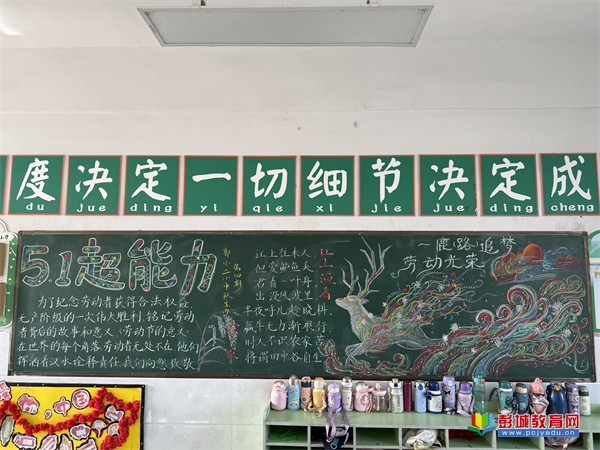 度决定一切细节决定成
du jue ding yi qie xi jie jue ding cheng
5.1超能力
为了纪念劳动者获得合法权益
无产阶级的一次伟大胜利,铭记劳动
者背后的故事和意义,劳动节的意义
在世界的每个角落劳动者无处不在他们
挥洒着汉水诠释责任,我们向您致敬
江上渔者
江上往来人
但爱鲈鱼美
君看一叶舟
出没风波里
半夜呼儿趁晓耕
羸牛无力渐艰行
时人不识农家苦
将谓田中谷自生
一鹿路追梦
劳动光荣
中国
彭城教育网
www.pcjyedu.cn